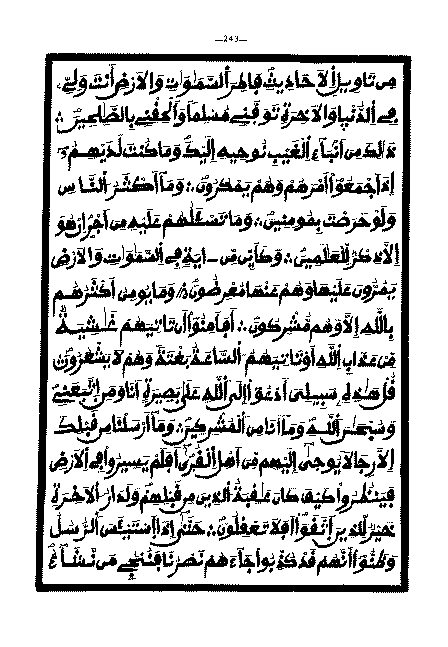 —243—
مِن تَاوِيلِ الْأَحَادِيثِ فَاطِرَ السَّمَٰوَٰتِ وَالْأَرْضِ أَنتَ وَلِيِّۦ
فِي الدُّنْيَا وَالْأَخِرَةِ تَوَفَّنِي مُسْلِماً وَأَلْحِقْنِي بِالصَّٰلِحِينَ
ذَٰلِكَ مِنْ أَنۢبَآءِ الْغَيْبِ نُوحِيهِ إِلَيْكَ وَمَا كُنتَ لَدَيْهِمُۥٓ
إِذَ أَجْمَعُوٓا أَمْرَهُمْ وَهُمْ يَمْكُرُونَ وَمَآ أَكْثَرُ النَّاسِ
وَلَوْ حَرَصْتَ بِمُومِنِينَ وَمَا تَسْـَٔلُهُمْ عَلَيْهِ مِنَ أَجْرٍ إِنْ هُوَ
إِلَّا ذِكْرٌ لِّلْعَٰلَمِينَ وَكَأَيِّن مِّنَ ـايَةٍ فِي السَّمَٰوَٰتِ وَالْأَرْضِ
يَمُرُّونَ عَلَيْهَا وَهُمْ عَنْهَا مُعْرِضُونَ وَمَا يُومِنُ أَكْثَرُهُم
بِاللَّهِ إِلَّا وَهُم مُّشْرِكُونَ أَفَأَمِنُوٓا أَن تَاتِيَهُمْ غَٰشِيَةٌ
مِّنْ عَذَابِ اللَّهِ أَوْ تَاتِيَهُمُ السَّاعَةُ بَغْتَةً وَهُمْ لَا يَشْعُرُونَ
قُلْ هَٰذِهِۦ سَبِيلِيَ أَدْعُوٓا إِلَى اللَّهِ عَلَىٰ بَصِيرَةٍ أَنَا وَمَنِ اتَّبَعَنِي
وَسُبْحَٰنَ اللَّهِ وَمَآ أَنَا مِنَ الْمُشْرِكِينَ وَمَآ أَرْسَلْنَا مِن قَبْلِكَ
إِلَّا رِجَالًا يُوحَىٰٓ إِلَيْهِم مِّنَ أَهْلِ الْقُرَىٰٓ أَفَلَمْ يَسِيرُوا فِي الْأَرْضِ
فَيَنظُرُوا كَيْفَ كَانَ عَٰقِبَةُ الَّذِينَ مِن قَبْلِهِمْ وَلَدَارُ الْأَخِرَةِ
خَيْرٌ لِّلَّذِينَ اتَّقَوَا أَفَلَا تَعْقِلُونَ حَتَّىٰٓ إِذَا اسْتَيْـَٔسَ الرُّسُلُ
وَظَنُّوٓا أَنَّهُمْ قَدْ كُذِّبُوا جَآءَهُمْ نَصْرُنَا فَنُـۨجِي مَن نَّشَآءُ